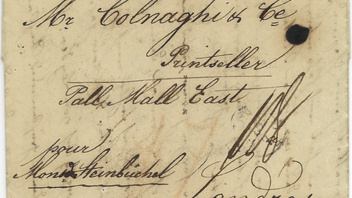 Mr. Colnaghi & Ce
Printseller
Pall Mall East
pour
Monsr Steinbüchel